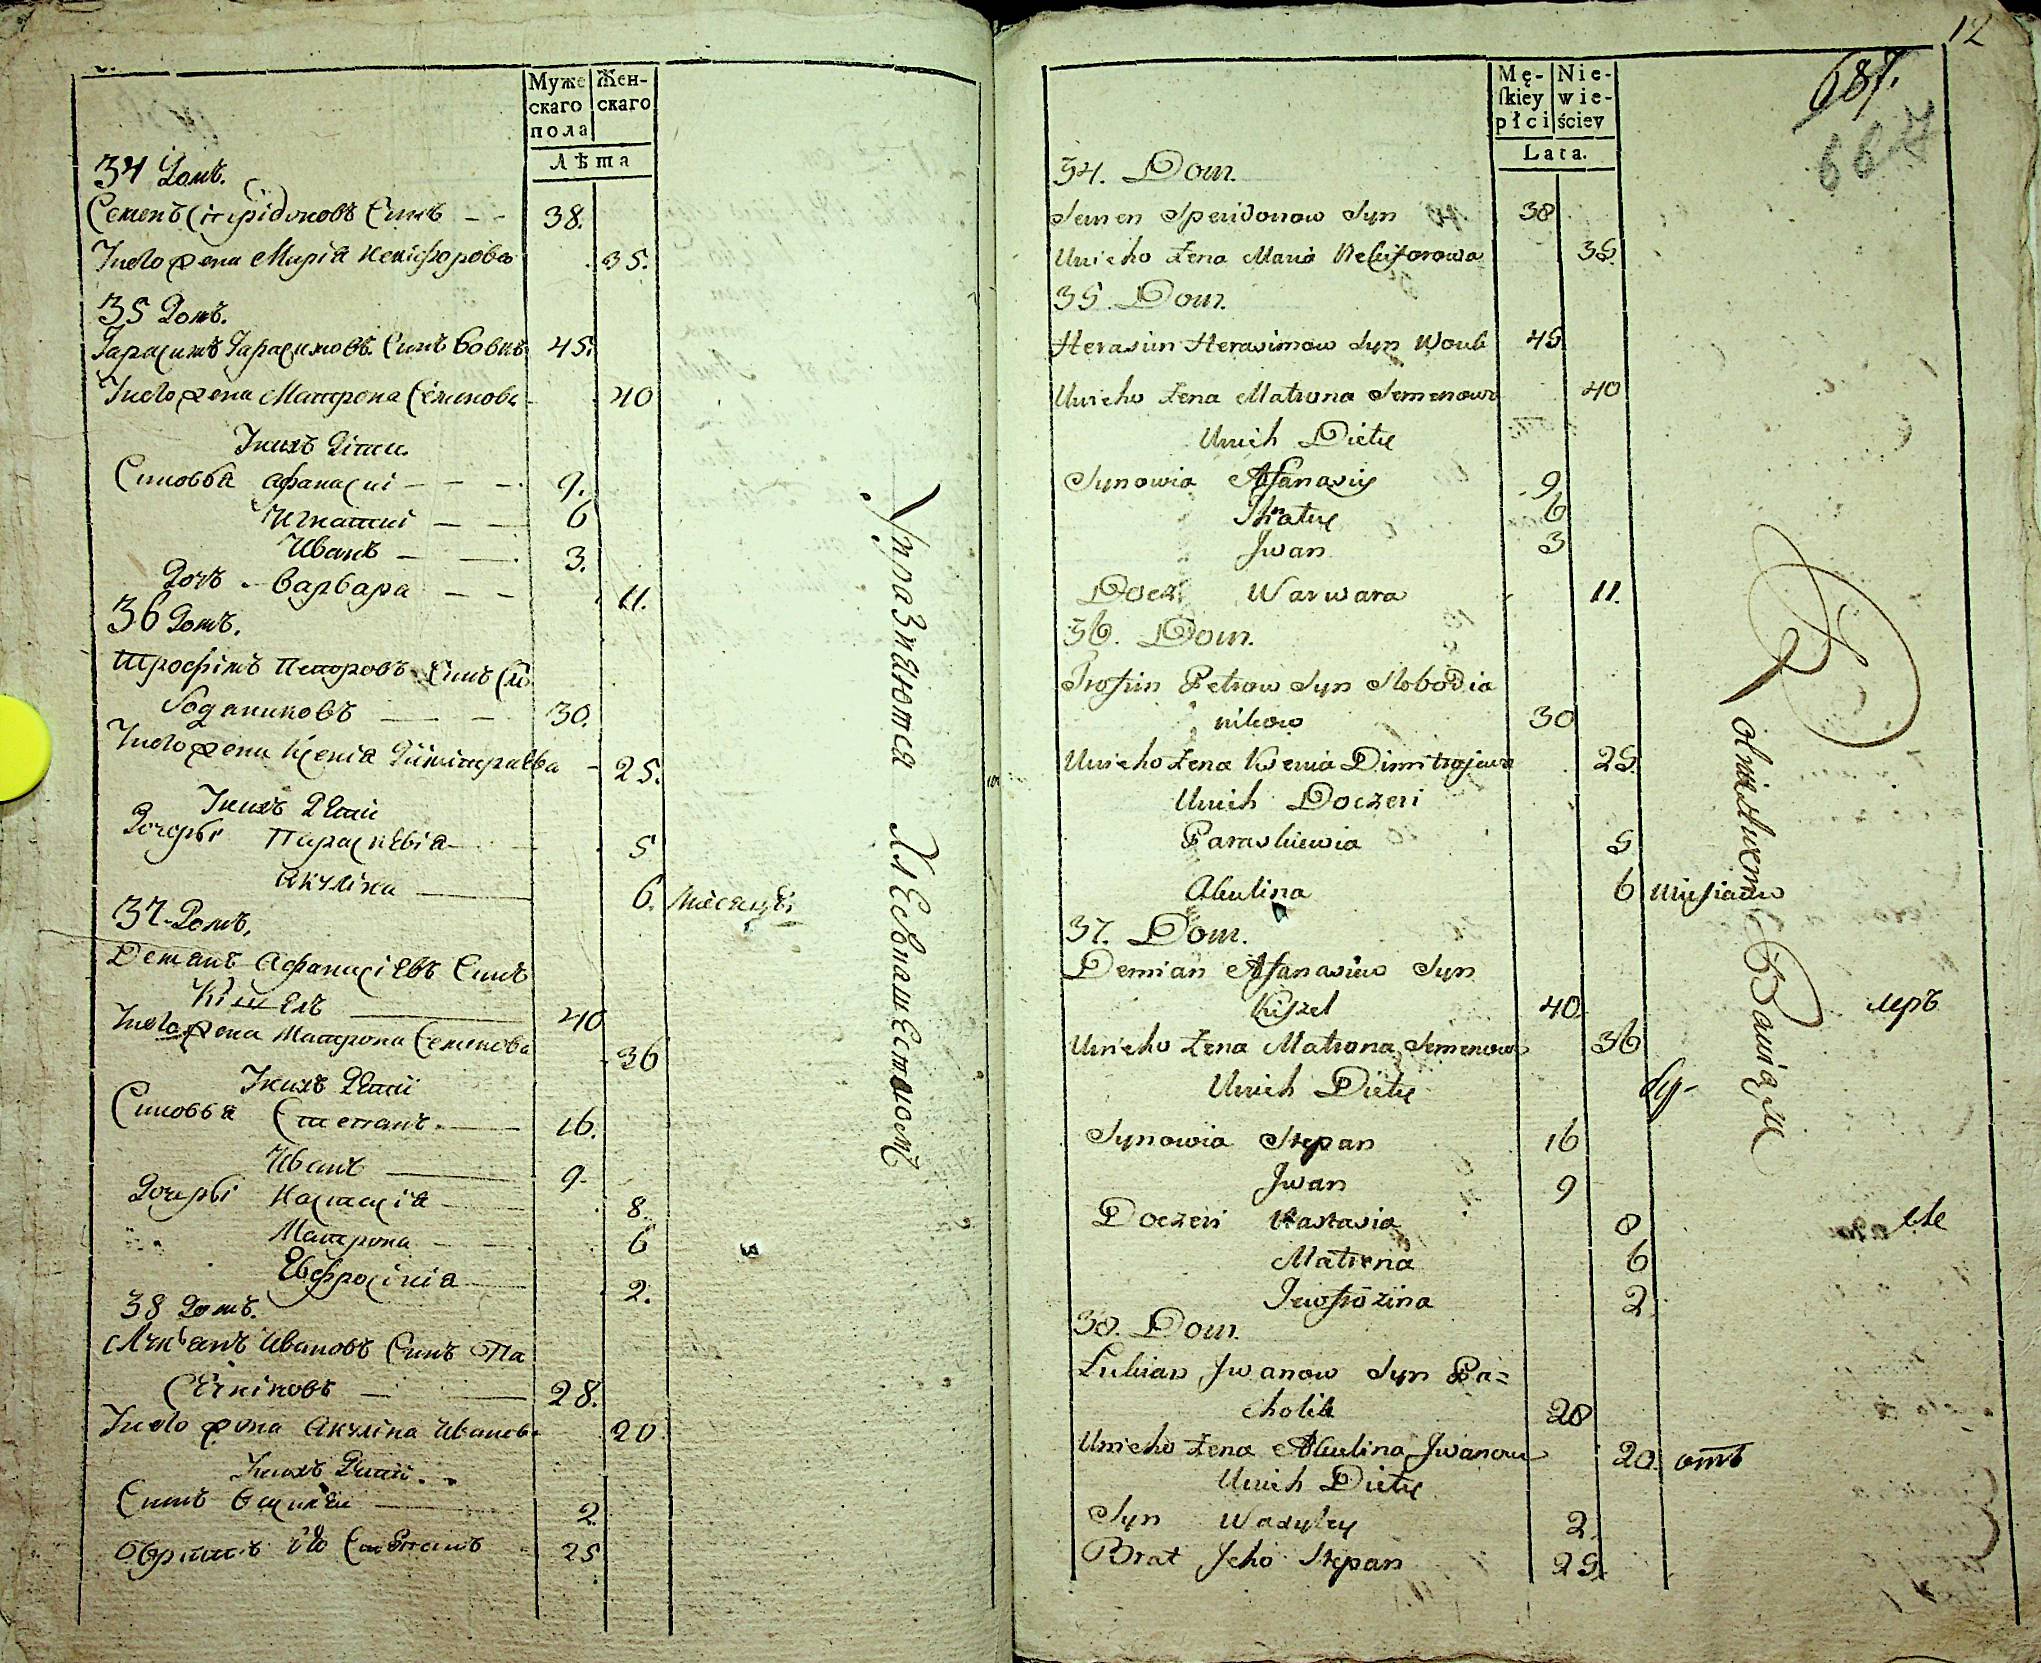 Муже Жен-
скаго скаго
пола
Лѣта
34 Домъ.
Семенъ Спірідоновъ Синъ 38.
Унего жена Марія Некифорова 35.
35 Домъ.
Гарасимъ Гарасимовъ Синъ Вовкъ 45.
Унего жена Матрона Семенова 40
Унихъ Діти
Синовья Афанасиі 9.
Игнатиі 6
Иванъ 3.
Дочъ Варвара 11.
36 Домъ.
Трофімъ Петровъ Синъ Сло
бодяниковъ 30.
Унего жена Ксенія Дімитраева 25.
Унихъ Дѣти
Дочерыи Параскѣвія 5
Акуліна 6. Мѣсяцѣ
37 Домъ.
Демянъ Афанасіевъ Синъ
Кішелъ 40
Унего жена Матрона Семенова 36
Унихъ Дѣти
Синовья Степанъ 16.
Иванъ 9.
Дочерыи Настасія 8.
Матрона 6
Евфросінія 2.
38 Домъ.
Лукъянъ Ивановъ Синъ Па
28.
Унего жена Акуліна Иванова 20
Унихъ Дѣти
Синъ Василеи 2
его Степанъ 25
Упразняются Хлебопашествомъ
12
687.
667
Mę- Nie-
skiey wie-
płci ściey
Lata.
34. Dom.
Semen Speridonow Syn 38
Unieho Żena Maria Nekiforowa 35.
35 Dom.
Herasim Herasimow Syn Wouk 45
Unieho Żena Matrona Semenowa 40
Unich Diety
Synowia Afanasiy 9
Ihnaty 6
Jwan 3
Docz Warwara 11.
36. Dom.
Trofim Petrow Syn Slobodia
nikow 30
Unieho Żena Ksenia Dimitrojewa 25.
Unich Doczeri
Paraskiewia 5
Akulina 6 miesiacow
37. Dom.
Demian Afanasiew Syn
Kiszel 40.
Unieho Żena Matrona Semenowa 36
Unich Diety
Synowia Stepan 16
Jwan 9
Doczeri Nastasia 8
Matrena 6
Jewfrozina 2
38. Dom.
Lukian Jwanow Syn Pa=
cholik 28
Unieho Żena Akulina Jwanowa 20.
Unich Diety
Syn Wasyley 2.
Brat Jeho Stepan 25.
Rolnictwem Bawią się